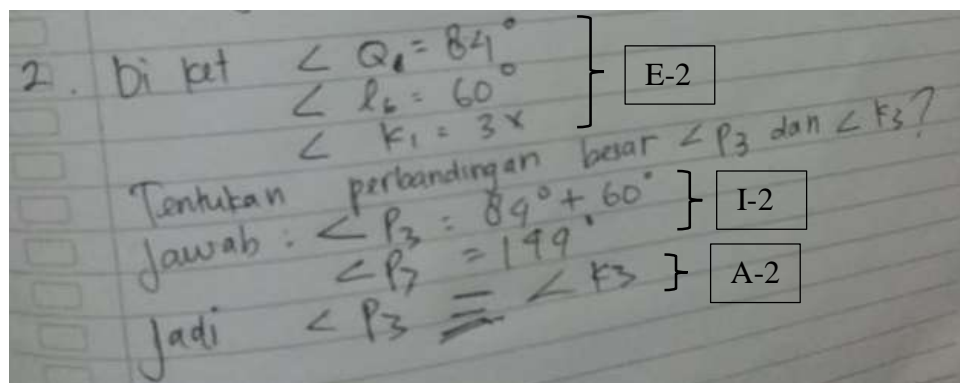 2. Diket < Q₁ = 84°
< l₆ = 60°
< k₁ = 3x
E-2
Tentukan perbandingan besar < P₃ dan < k₃?
Jawab : < P₃ = 84° + 60°
< P₃ = 144°
I-2
Jadi < P₃ = < k₃
A-2